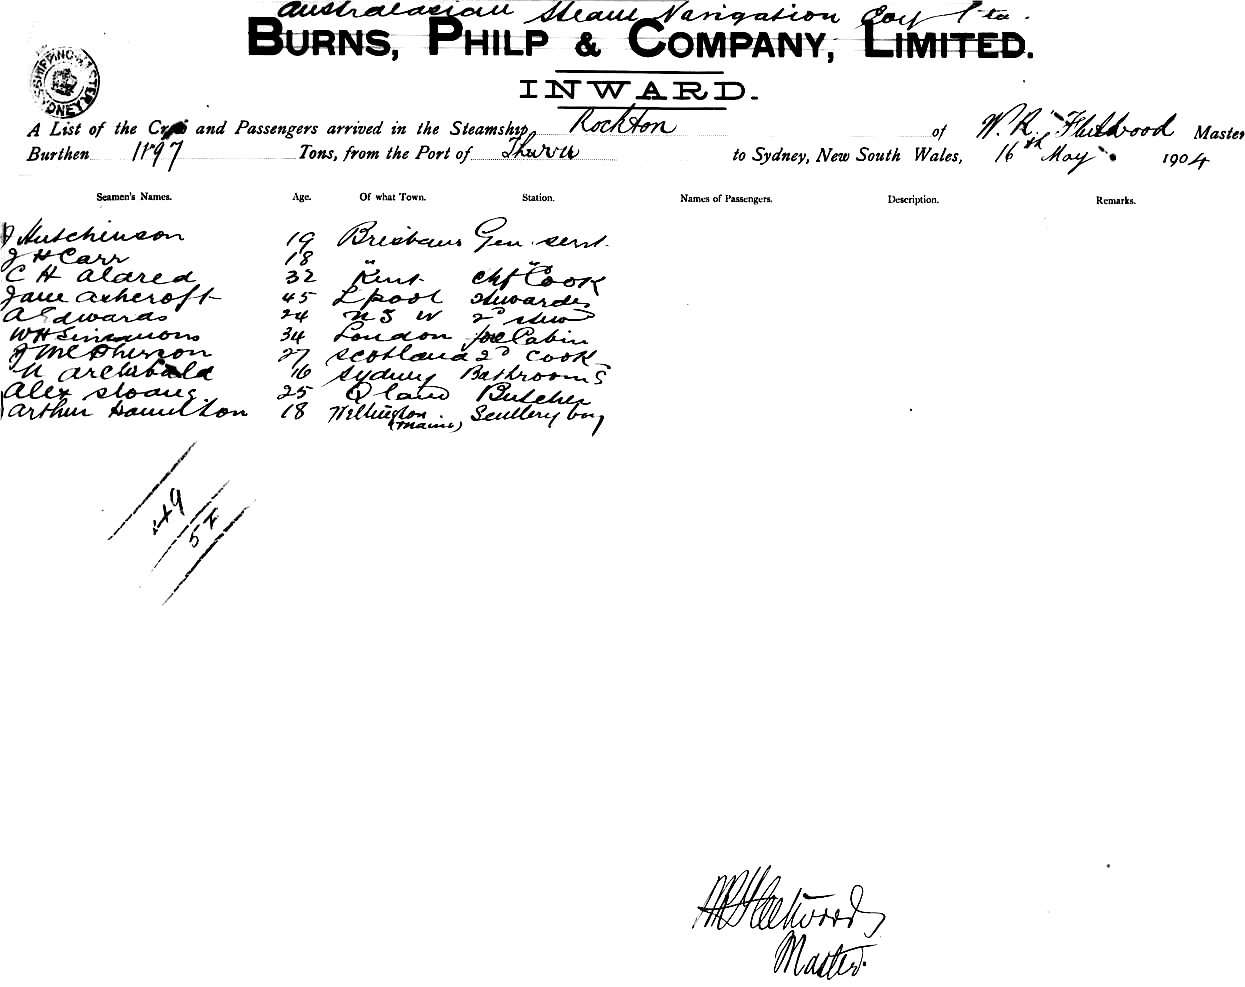 Australasian Steam Navigation Coy Ltd.
BURNS, PHILP & COMPANY, LIMITED.
INWARD.
SHIPPING MASTER SYDNEY
A List of the Crew and Passengers arrived in the Steamship Rockton of W. R. Fleetwood Master
Burthen 1197 Tons, from the Port of to Sydney, New South Wales, 16th May 1904
Seamen's Names. Age. Of what Town. Station. Names of Passengers. Description. Remarks.
J Hutchinson 19 Brisbane Gen. servt.
J H Carr 18 " "
C H Aldred 32 Kent Chf Cook
Jane Ashcroft 45 L'pool Stewardess
A Edwards 24 N S W 2d stew
W H Simmons 34 London fore Cabin
J McPherson 27 Scotland 2d Cook
N Archibald 16 Sydney Bathrooms
Alex Sloane 25 Q'land Butcher
Arthur Hamilton 18 Wellington Scullery boy
49
57
WR Fleetwood
Master.